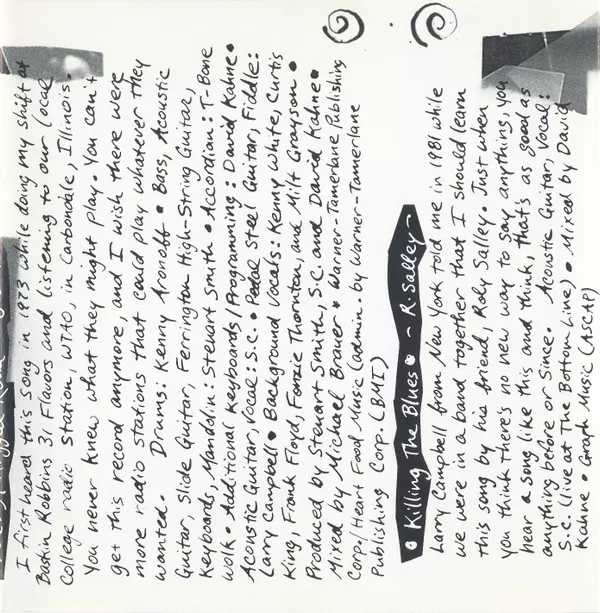 I first heard this song in 1973 while doing my shift at
Baskin Robbins 31 Flavors and listening to our local
college radio station, WTAO, in Carbondale, Illinois.
You never knew what they might play. You can't
get this record anymore, and I wish there were
more radio stations that could play whatever they
wanted. Drums: Kenny Aronoff • Bass, Acoustic
Guitar, Slide Guitar, Ferrington High-String Guitar,
Keyboards, Mandolin: Stewart Smith • Accordian: T-Bone
Wolk • Additional Keyboards/Programming: David Kahne •
Acoustic Guitar, Vocal: S.C. • Pedal Steel Guitar, Fiddle:
Larry Campbell • Background Vocals: Kenny White, Curtis
King, Frank Floyd, Fonzie Thornton, and Milt Grayson •
Produced by Steuart Smith, S.C. and David Kahne •
Mixed by Michael Brauer • Warner-Tamerlane Publishing
Corp./Heart Food Music (admin. by Warner-Tamerlane
Publishing Corp. (BMI)
• Killing The Blues • ~ R. Salley ~
Larry Campbell from New York told me in 1981 while
we were in a band together that I should learn
this song by his friend, Roly Salley. Just when
you think there's no new way to say anything, you
hear a song like this and think, that's as good as
anything before or since. Acoustic Guitar, Vocal:
S.C. (live at The Bottom Line) • Mixed by David
Kahne • Graph Music (ASCAP)